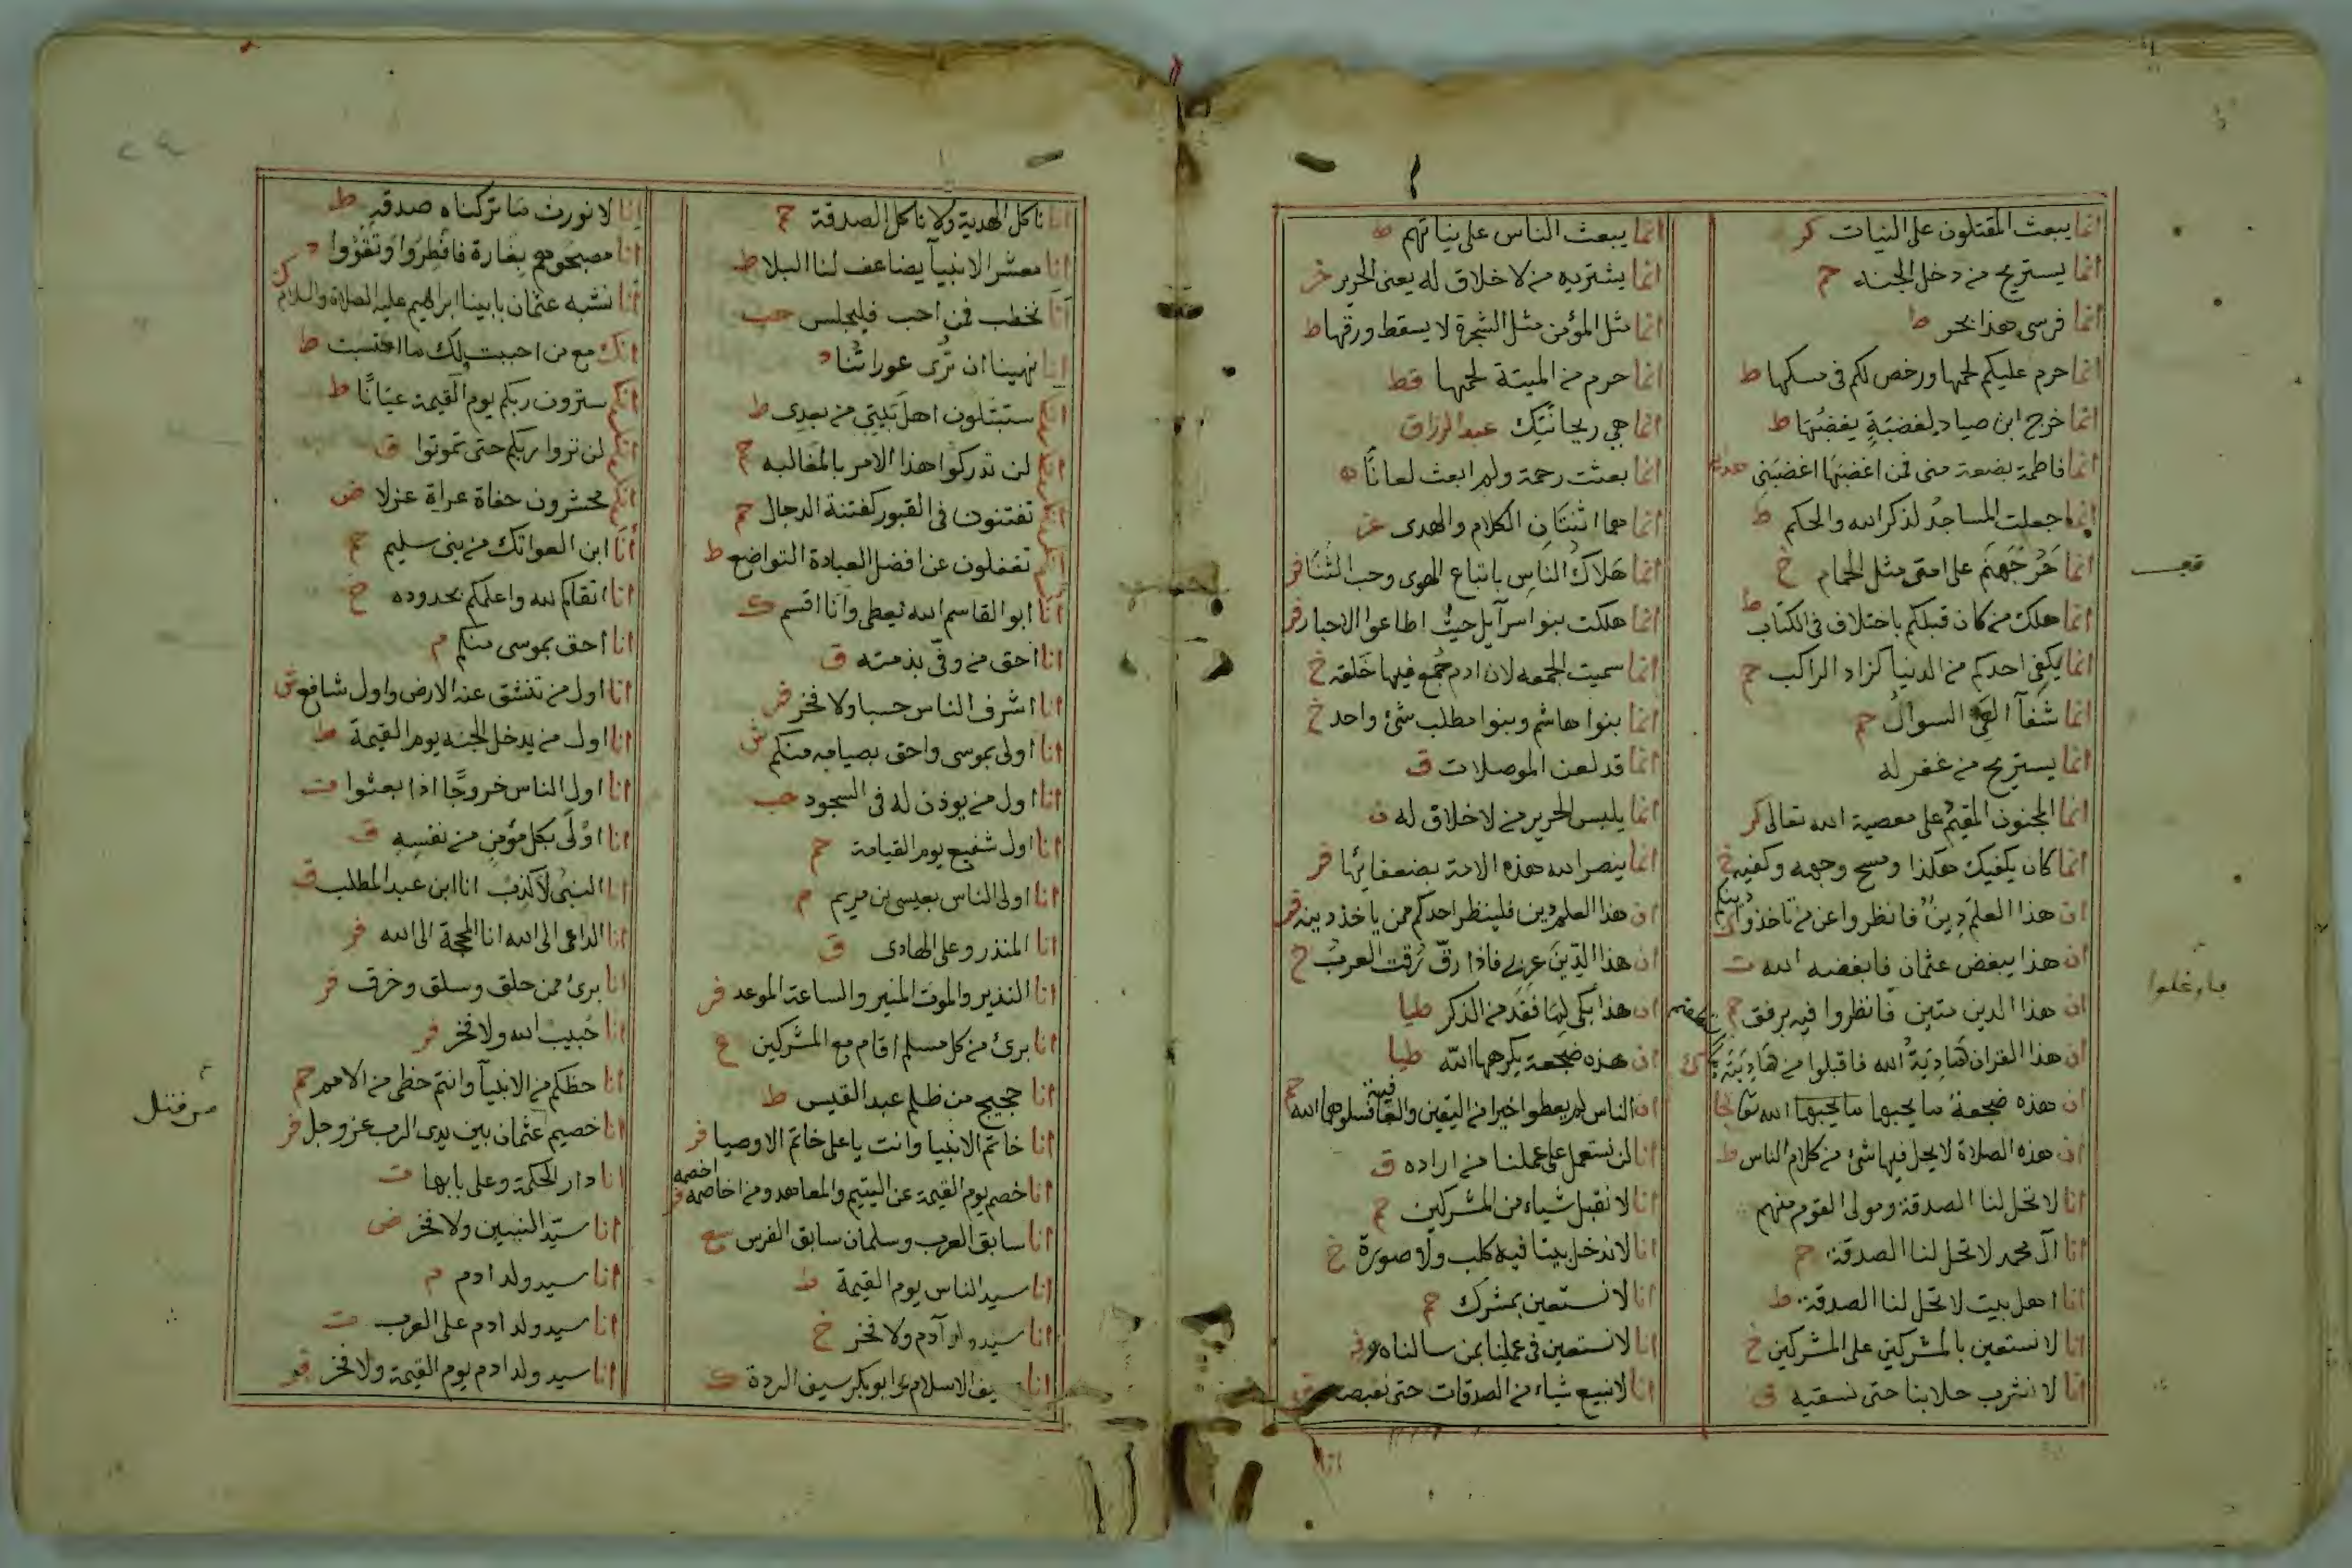 انما يبعث المقتتلون على النيات كر
انما يستريح من دخل الجنه حم
انما فرسى هذا بحر ط
انما حرم عليكم لحمها ورخص لكم فى مسكها ط
انما خرج ابن صياد لغضبة يغضبها ط
انما فاطمة بضعة منى فمن اغضبها اغضبنى
انما جعلت المساجد لذكر الله والحكم ط
انما حر جهنم على امتى مثل الحمام خ
انما هلك من كان قبلكم باختلاف فى الكتاب ط
انما يكفى احدكم من الدنيا كزاد الراكب ح
انما شفآ العى السوال حم
انما يستريح من غفر له
انما المجنون المقيم على معصية الله تعالى كر
انما كان يكفيك هكذا ومسح وجهه وكفيه خ
ان هذا العلم دين فانظروا عن من تاخذوا دينكم
ان هذا يبغض عثمان فابغضه الله ت
ان هذا الدين متين فانظروا فيه برفق ح
ان هذا القران هادبة الله فاقبلوا من هادبته
ان هذه ضجعة ما يحبها ما يحبها الله تعا
ان هذه الصلاة لا يحل فيها شئ من كلام الناس ط
انا لا تحل لنا الصدقة ومولى القوم منهم
انا آل محمد لا تحل لنا الصدقة حم
انا اهل بيت لا تحل لنا الصدقة ط
انا لا نستعين بالمشركين على المشركين خ
انا لا نشرب حلابنا حتى نسقيه
فاوغلوا
انما يبعث الناس على نياتهم ط
انما يشتريه من لا خلاق له يعنى الحرير خ
انما مثل المؤمن مثل الشجرة لا يسقط ورقها ط
انما حرم من الميتة لحمها قط
انما هي ريحانتيك عبد الرزاق
انما بعثت رحمة ولم ابعث لعانًا
انما هما اثنتان الكلام والهدى
انما هلاك الناس باتباع الهوى وحب الثنا فر
انما هلكت بنوا سرآيل حيث اطاعوا الاحبار فر
انما سميت الجمعه لان ادم جمع فيها خلقه خ
انما بنوا هاشم وبنوا مطلب شئ واحد خ
انما قد لعن الموصلات ق
انما يلبس الحرير من لا خلاق له ق
انما ينصر الله هذه الامة بضعفائها فر
ان هذا العلم دين فلينظر احدكم ممن ياخذ دينه فر
ان هذا الدين عربى فاذا رق رقت العرب خ
ان هذا بكى لما فقد من الذكر طيا
ان هذه ضجعة يكرهها الله طيا
ان الناس لم يعطوا خيرا من اليقين والعافية فسلوهما الله حم
انا لن نستعمل على عملنا من اراده ق
انا لا نقبل شياء من المشركين حم
انا لا ندخل بيتا فيه كلب ولا صورة خ
انا لا نستعين بمشرك حم
انا لا نستعين فى عملنا بمن سالناه
انا لا نبيع شياء من الصدقات حتى نقبضه
انا
انا ناكل الهدية ولا ناكل الصدقة ح
انا معشر الانبيآ يضاعف لنا البلا ط
انا نخطب فمن احب فليجلس حب
انا نهينا ان ترى عوراتنا د
انكم ستبتلون اهل بيتى من بعدى ط
انكم لن تدركوا هذا الامر بالمغالبه ح
انكم تفتنون فى القبور كفتنة الدجال حم
انكم تغفلون عن افضل العبادة التواضع ط
انا ابو القاسم الله يعطى وانا اقسم ك
انا احق من وفى بذمته ق
انا اشرف الناس حسبا ولا فخر فر
انا اولى بموسى واحق بصيامه منكم ش
انا اول من يوذن له فى السجود حب
انا اول شفيع يوم القيامة حم
انا اولى الناس بعيسى بن مريم م
انا المنذر وعلى الهادى ق
انا النذير والموت المغير والساعة الموعد فر
انا برئ من كل مسلم اقام مع المشركين
انا حجيج من ظلم عبد القيس ط
انا خاتم الانبيا وانت يا على خاتم الاوصيا فر
انا خصم يوم القيمة عن اليتيم والمعاهد ومن اخاصمه اخصمه فر
انا سابق العرب وسلمان سابق الفرس سع
انا سيد الناس يوم القيمة ط
انا سيد ولد آدم ولا فخر خ
انا سيف الاسلام وابو بكر سيف الردة ك
انا لا نورث ما تركناه صدقة ط
انا مصبحوهم بغارة فافطروا وتقووا
انا نشبه عثمان بابينا ابراهيم عليه الصلاة والسلام
انك مع من احببت ولك ما احتسبت ط
انكم سترون ربكم يوم القيمة عيانًا ط
انكم لن تروا ربكم حتى تموتوا ق
انكم محشرون حفاة عراة عزلا ض
انا ابن العواتك من بنى سليم حم
انا اتقاكم لله واعلمكم بحدوده خ
انا احق بموسى منكم م
انا اول من تنشق عنه الارض واول شافع ش
انا اول من يدخل الجنه يوم القيمة ط
انا اول الناس خروجًا اذا بعثوا ت
انا اولى بكل مؤمن من نفسه ق
انا النبى لا كذب انا ابن عبد المطلب ق
انا الداعى الى الله انا المحجة الى الله فر
انا برئ ممن حلق وسلق وخرق فر
انا حبيب الله ولا فخر فر
انا حظكم من الانبيآ وانتم حظى من الامم حم
انا خصيم عثمان بين يدى الرب عز وجل فر
انا دار الحكمة وعلى بابها ت
انا سيد النبيين ولا فخر ض
انا سيد ولد ادم م
انا سيد ولد ادم على العرب ت
انا سيد ولد ادم يوم القيمة ولا فخر